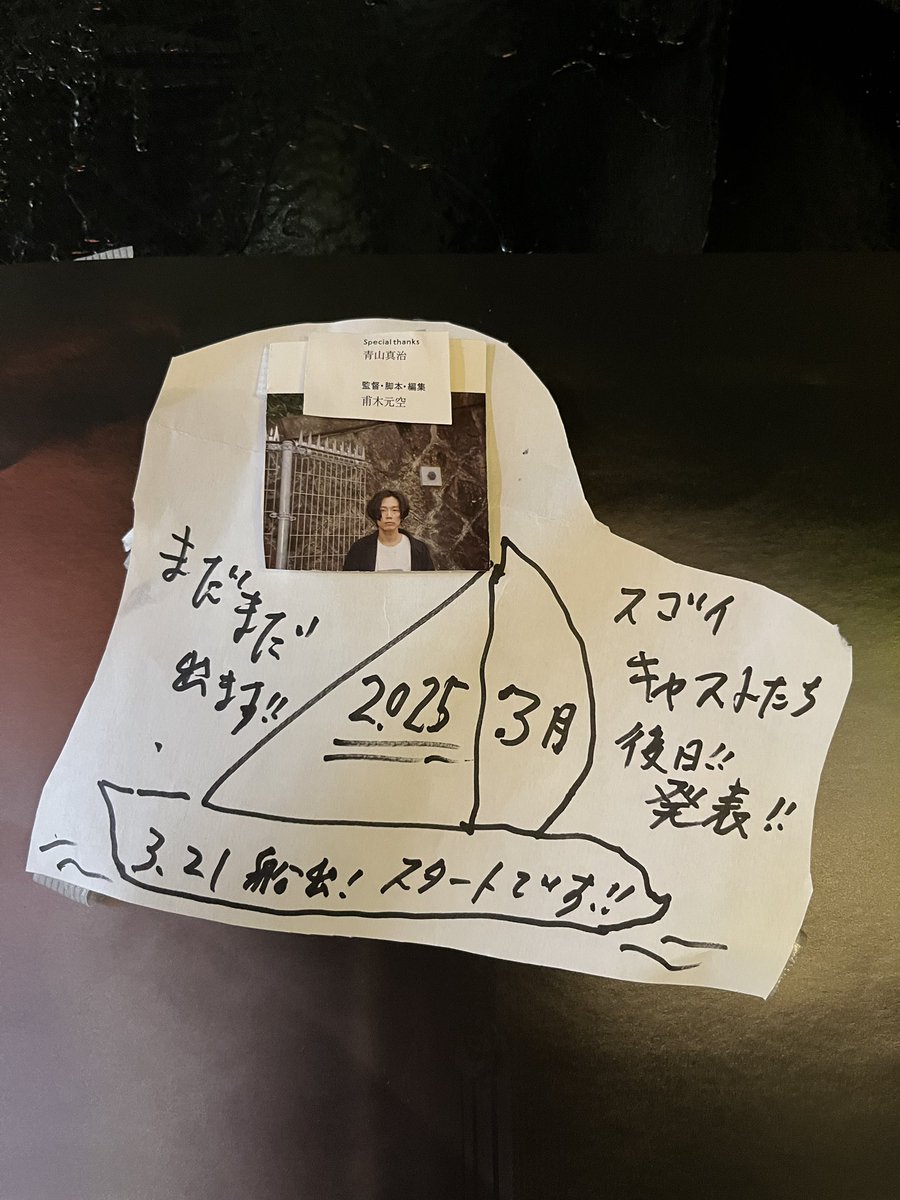 Special thanks
青山真治
監督・脚本・編集
甫木元空
まだまだ
出ます!!
スゴイ
キャストたち
後日!!
発表!!
2.025
.3月
3.21 船出! スタートです!!